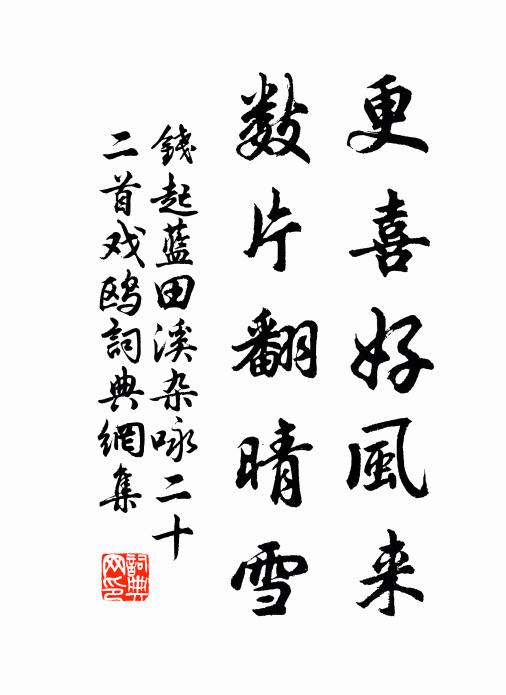 更喜好風来
數片翻晴雪
錢起藍田溪杂咏二十
二首戏鸥詞典網集
詞典
网印